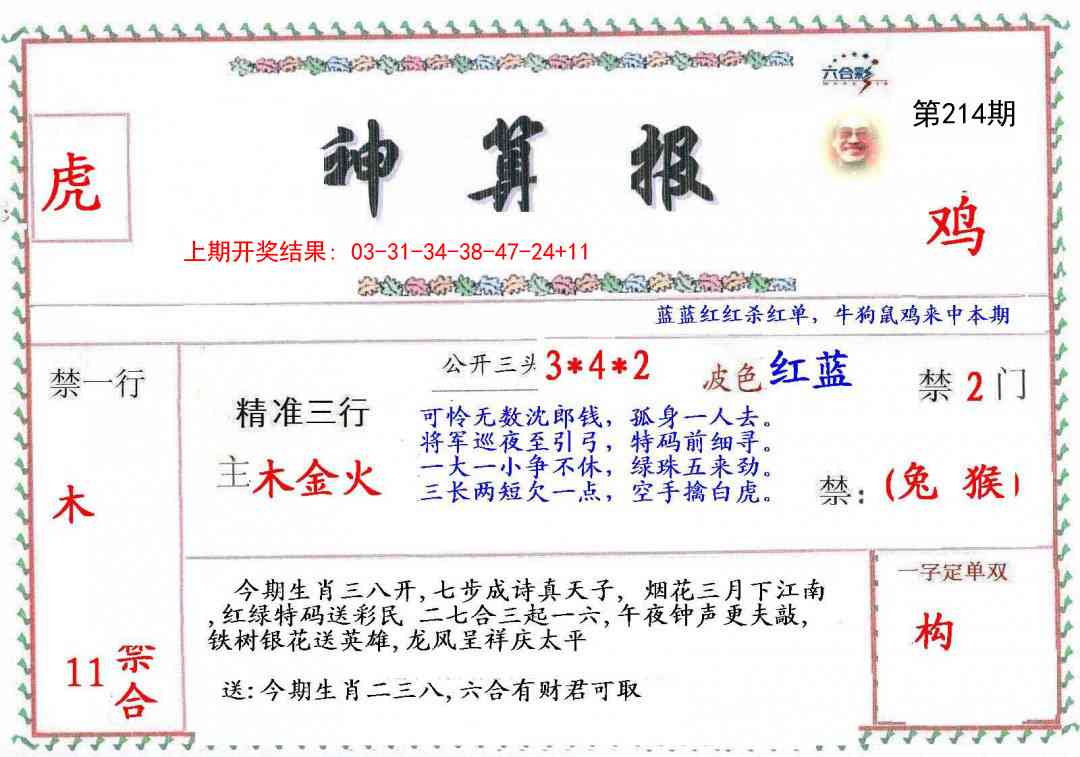 六合彩
第214期
神算报
虎
鸡
上期开奖结果：03-31-34-38-47-24+11
蓝蓝红红杀红单，牛狗鼠鸡来中本期
禁一行
公开三头3*4*2
波色红蓝
禁2门
精准三行
主木金火
可怜无数沈郎钱，孤身一人去。
将军巡夜至引弓，特码前细寻。
一大一小争不休，绿珠五来劲。
三长两短欠一点，空手擒白虎。
禁：(兔 猴)
木
11禁合
今期生肖三八开,七步成诗真天子, 烟花三月下江南
,红绿特码送彩民 二七合三起一六,午夜钟声更夫敲,
铁树银花送英雄,龙风呈祥庆太平
送:今期生肖二三八,六合有财君可取
一字定单双
构